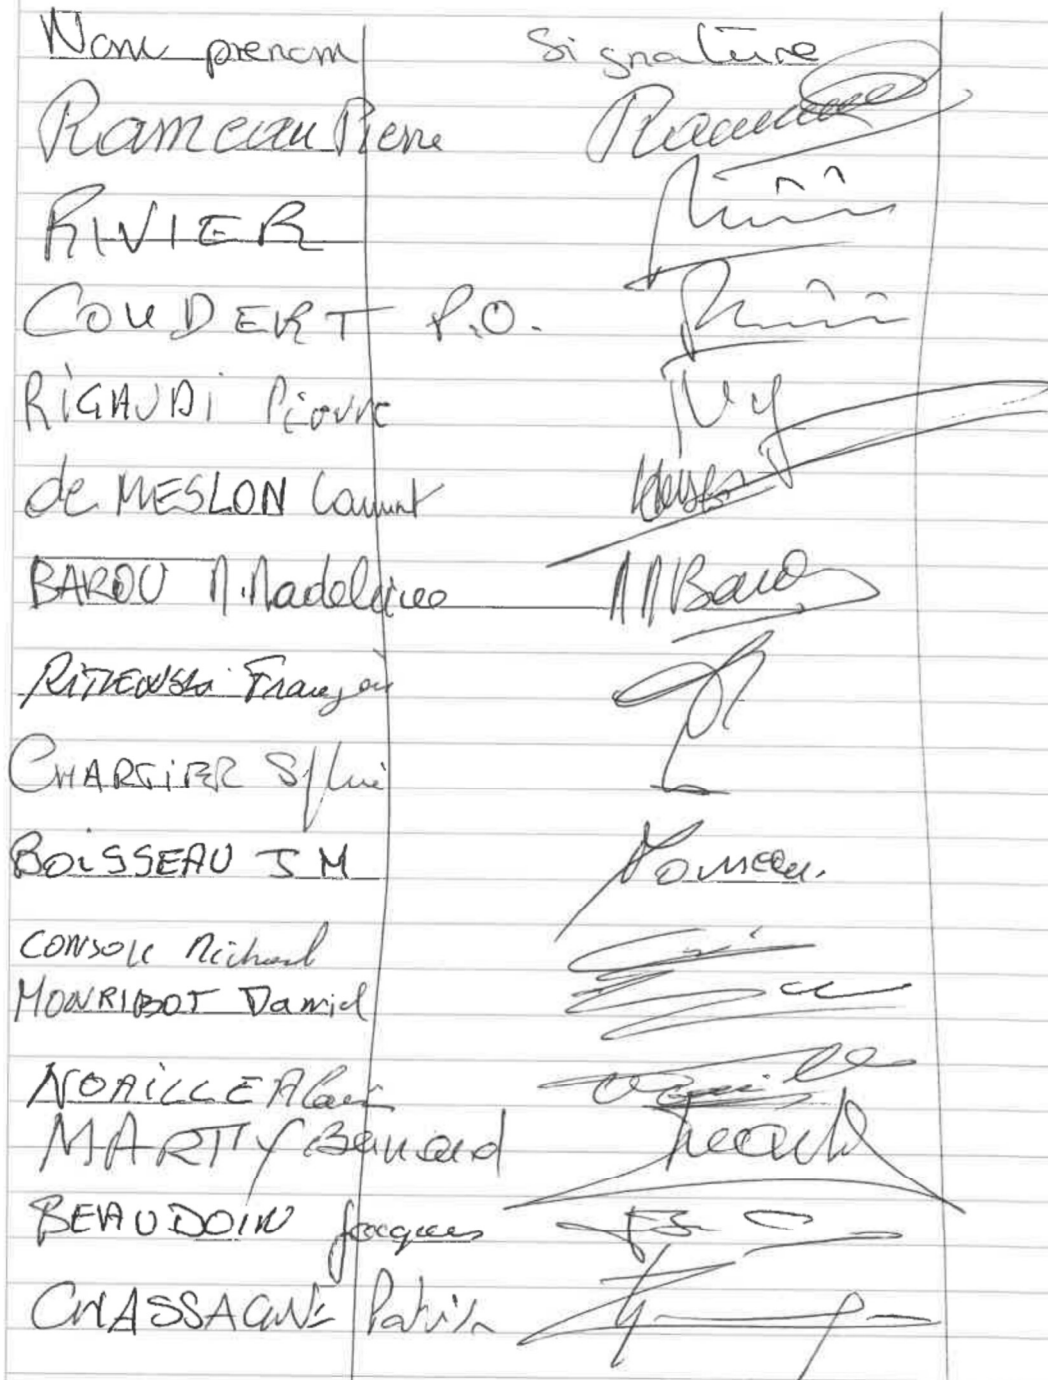 Nom prenom Signature
Rameau Pierre Rameau
RIVIER
COUDERT P.O.
RIGAUDI Pierre
de MESLON Laurent
BAROU M.Madeleine MMBarou
François
CHARTIER Sylvie
BOISSEAU J M Boisseau.
CONSOLE Richard
MONRIBOT Daniel
NOAILLE Alain
MARTY Bernard
BEAUDOIN Jacques
CHASSAGNE Patrick